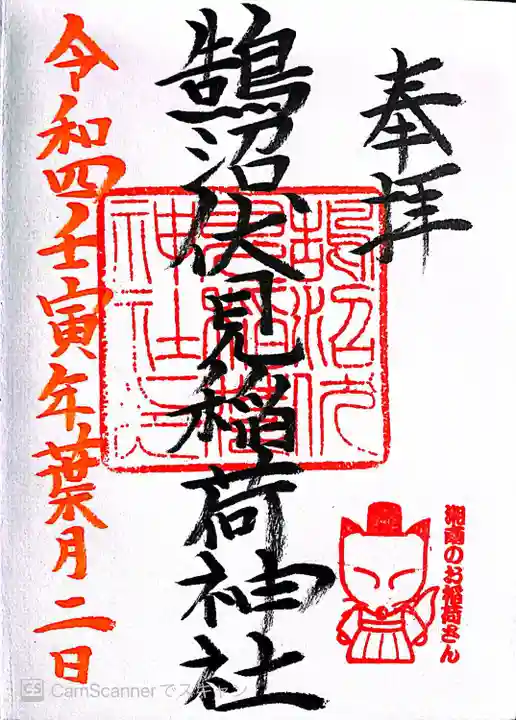 奉拝
鵠沼伏見稲荷神社
令和四壬寅年葉月二日
湘南のお稲荷さん
CS CamScannerでスキャン